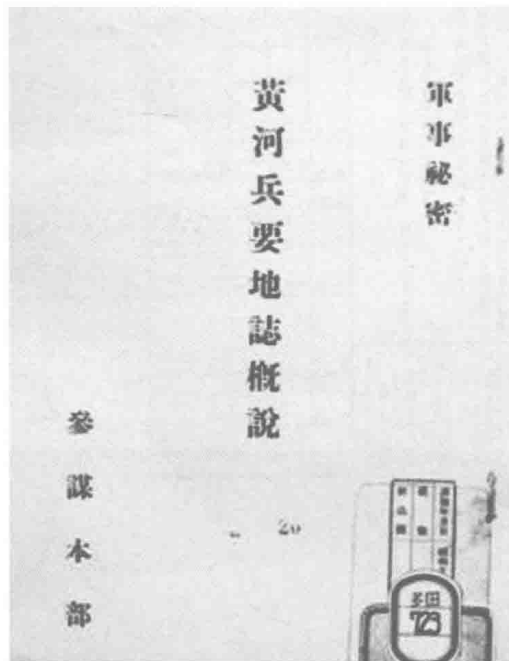 軍事秘密
黄河兵要地誌概説
参謀本部
20
多田
723